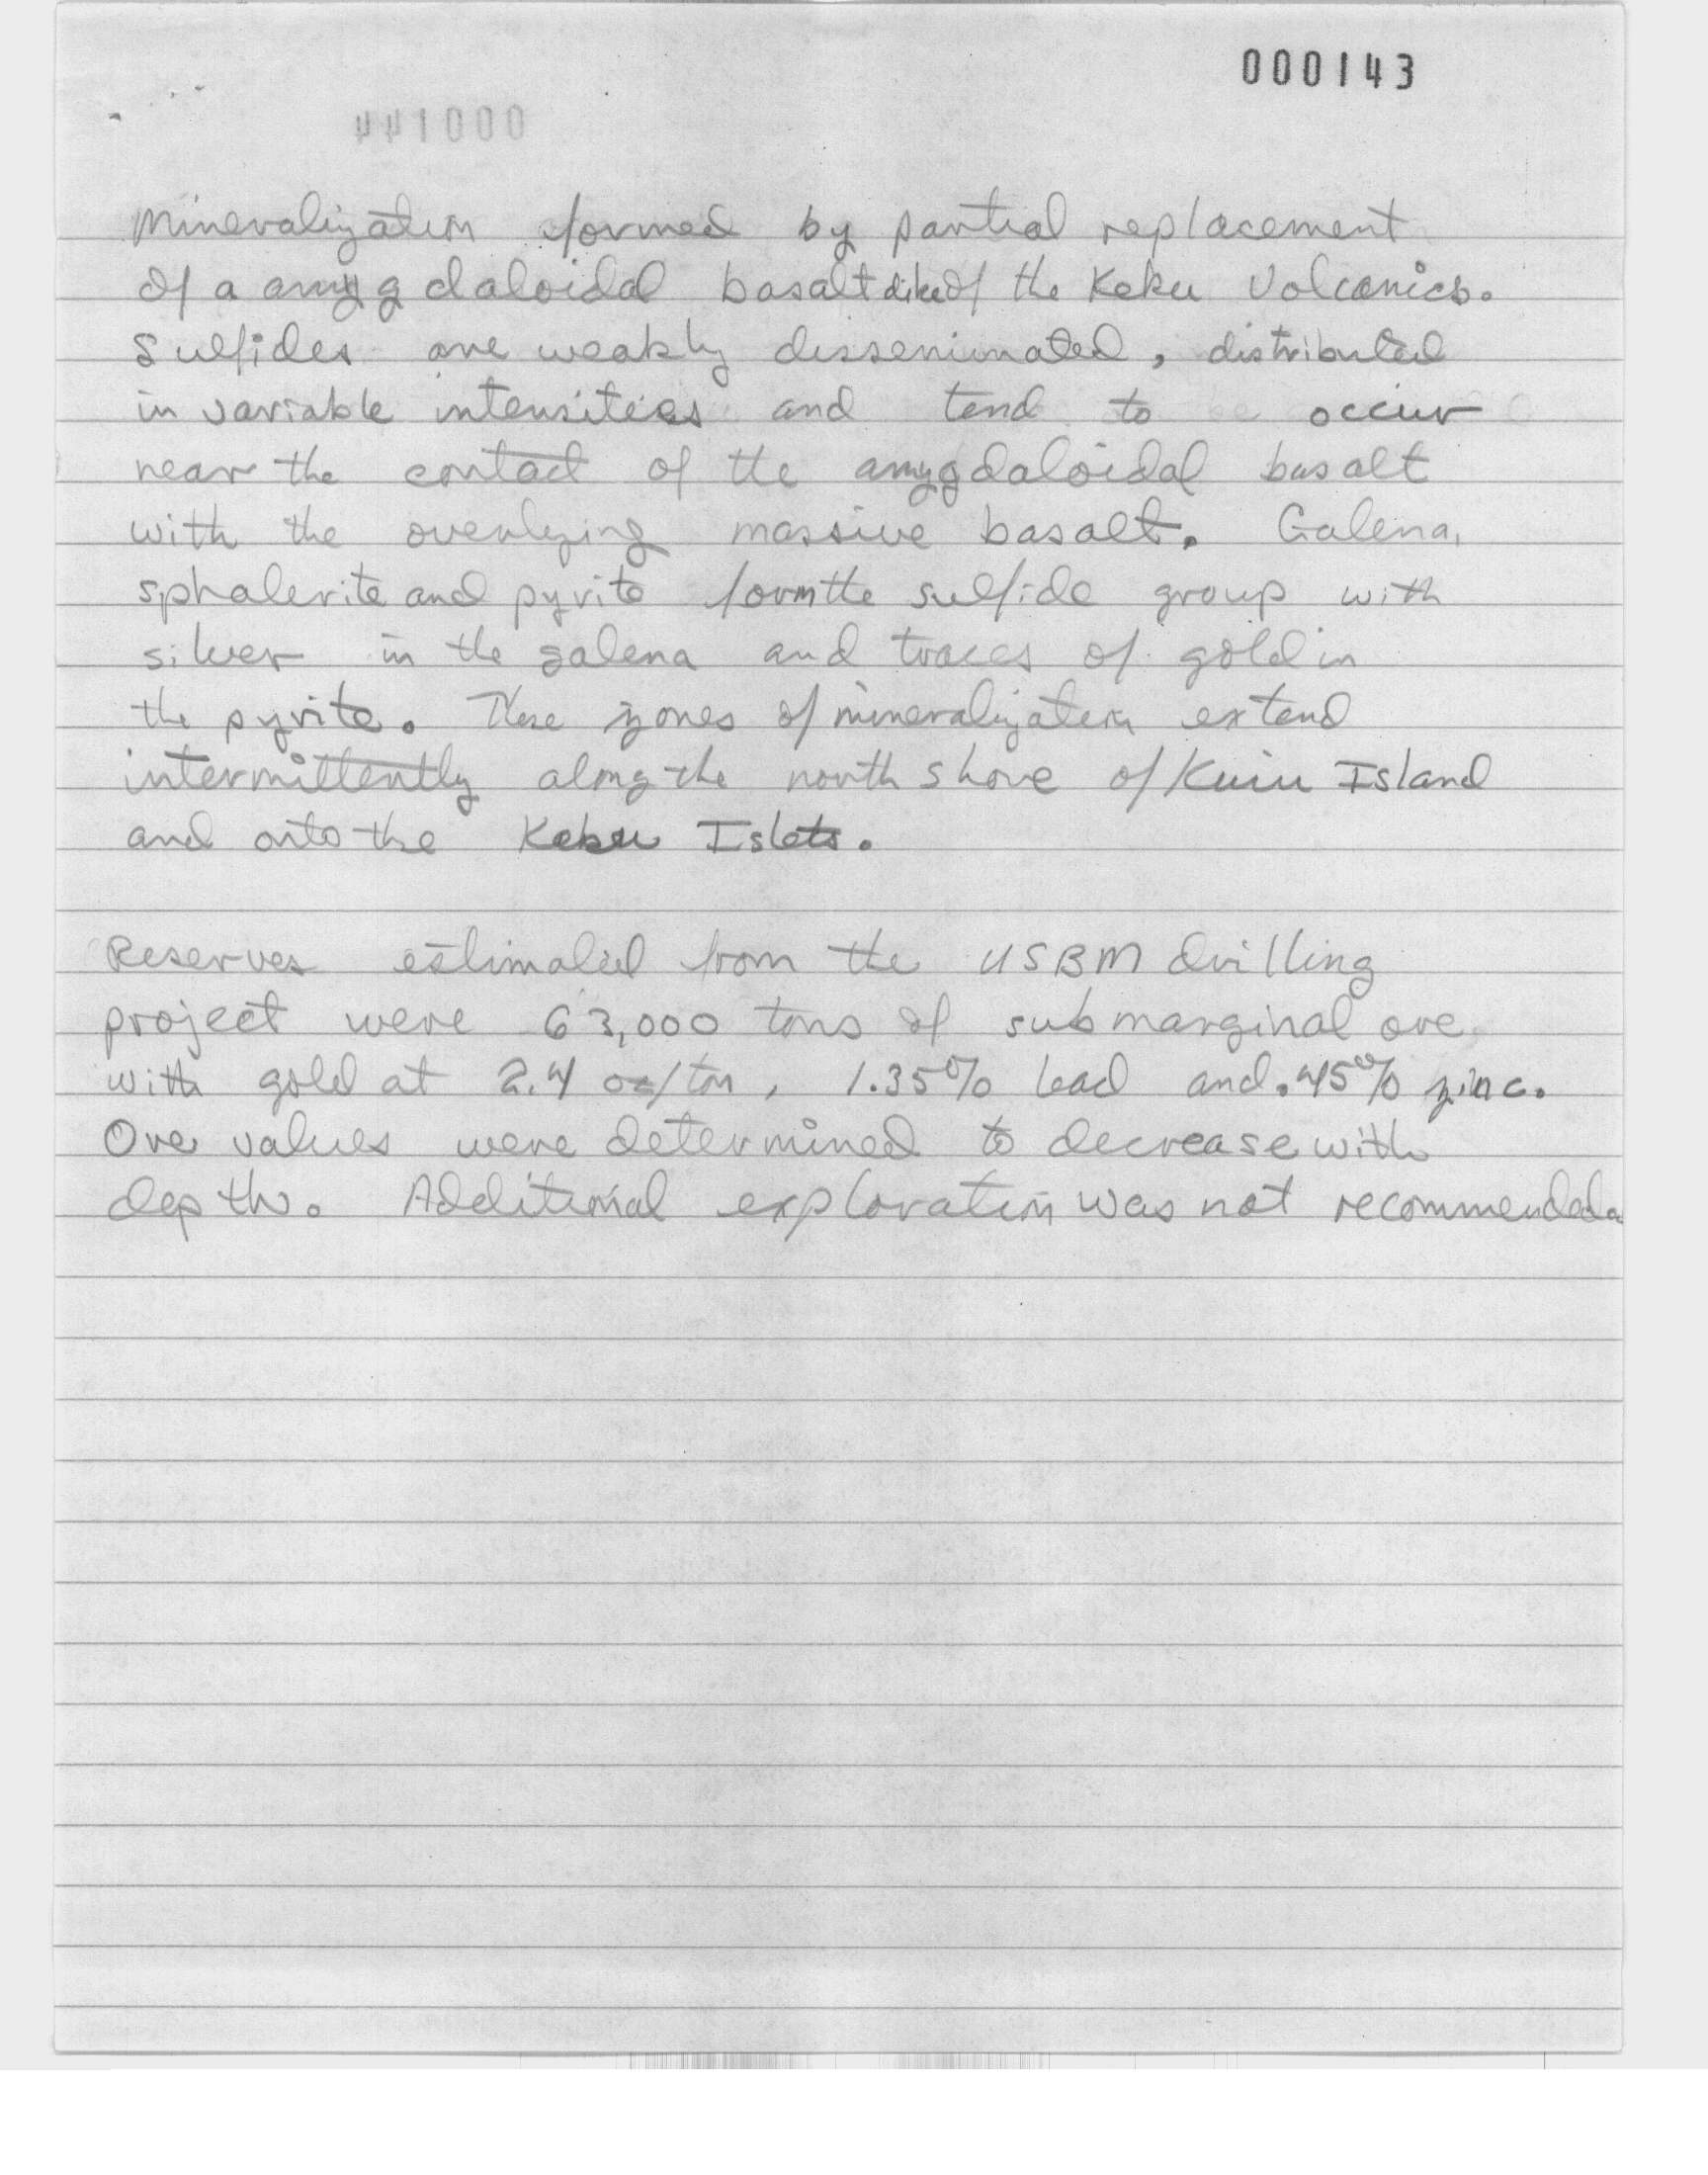 000143
Mineralization formed by partial replacement
of a amygdaloidal basalt dike of the Keku Volcanics.
Sulfides are weakly disseminated, distributed
in variable intensities and tend to occur
near the contact of the amygdaloidal basalt
with the overlying massive basalt. Galena,
sphalerite and pyrite form the sulfide group with
silver in the galena and traces of gold in
the pyrite. These zones of mineralization extend
intermittently along the north shore of Kuiu Island
and onto the Keku Islets.
Reserves estimated from the USBM drilling
project were 63,000 tons of submarginal ore
with gold at 2.4 oz/ton, 1.35% lead and .45% zinc.
Ore values were determined to decrease with
depth. Additional exploration was not recommended.